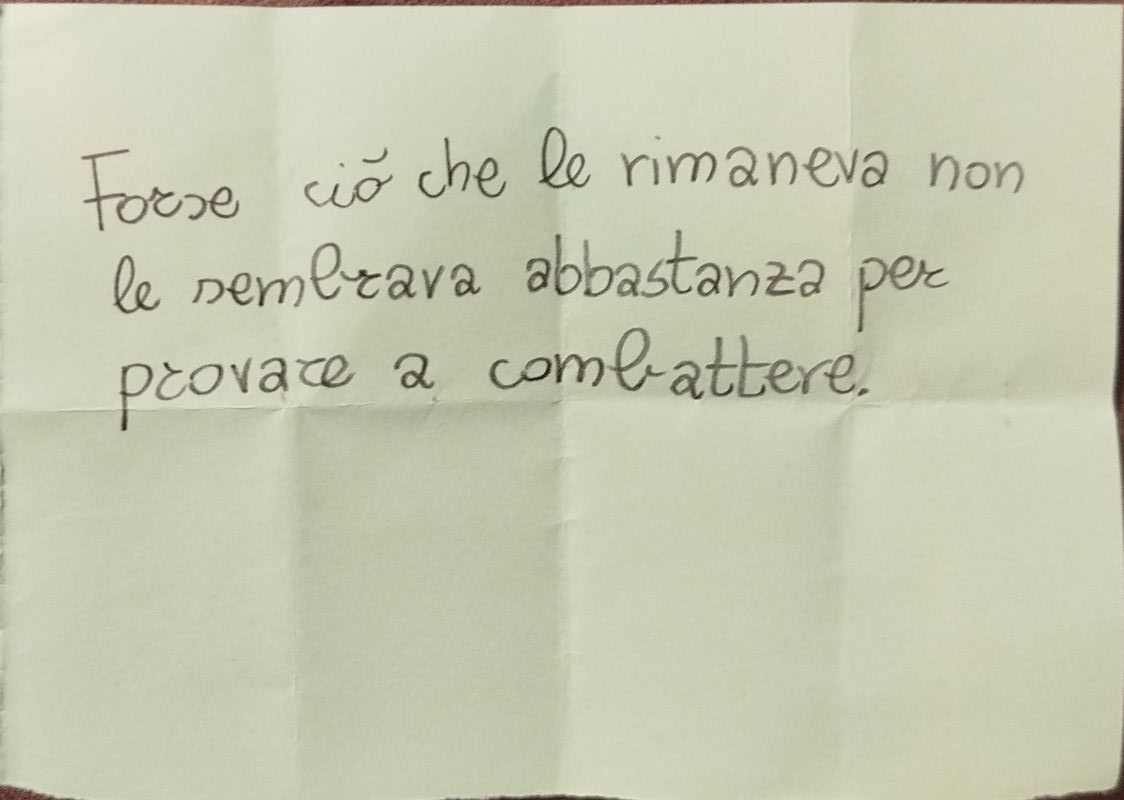 Forse ciò che le rimaneva non
le sembrava abbastanza per
provare a combattere.